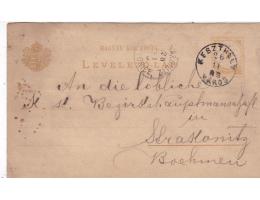 MAGYAR KIR. POSTA
LEVELEZŐ-LAP
KESZTHELY
VÁROS
An die löbliche
K. k. Bezirkshauptmannschaft
in
Strakonitz
Boehmen